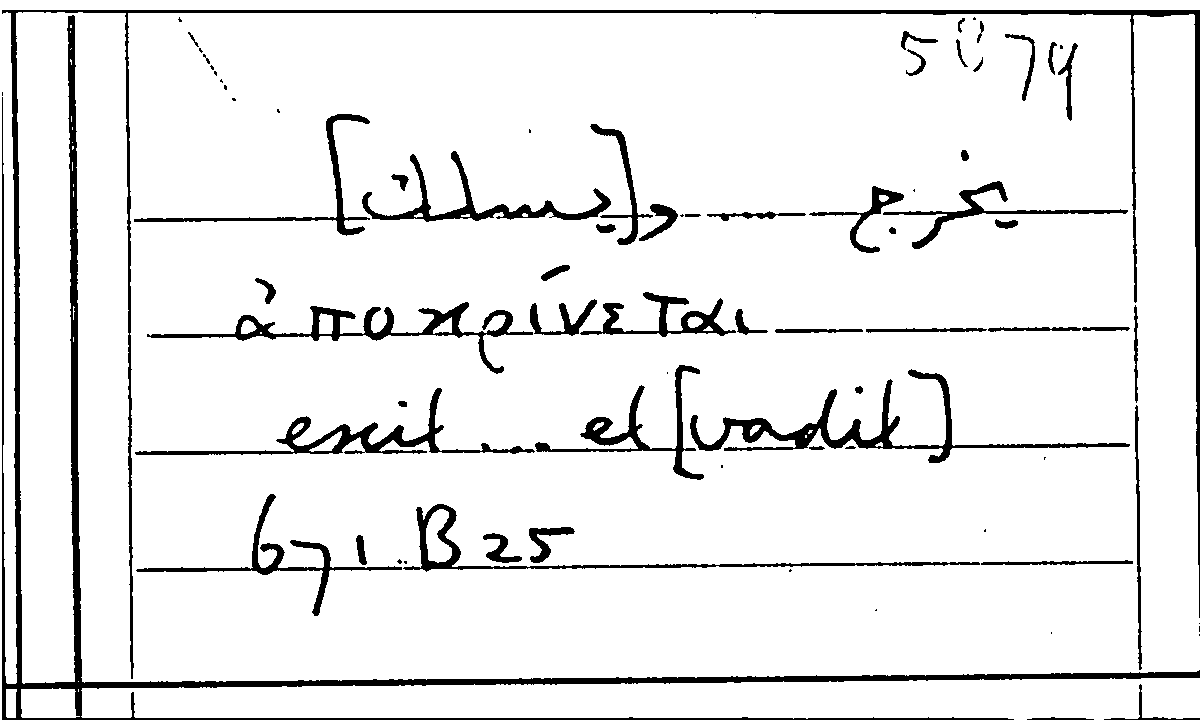 5874
يخرج .... و[يسلك]
ἀποκρίνεται
exit .... et [vadit]
671. B 25